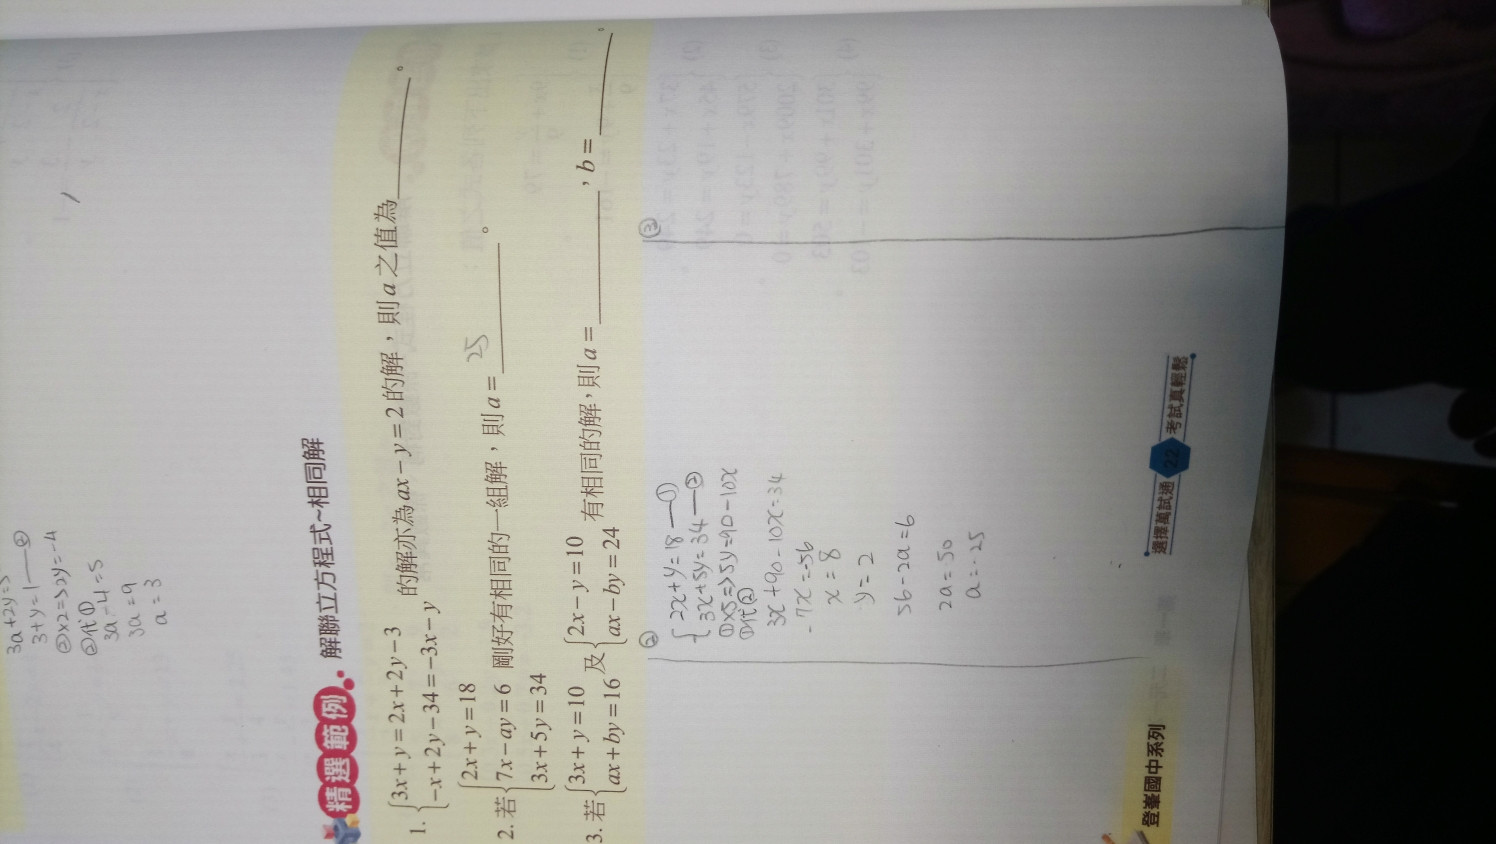 3a+2y=5
3+y=1—②
②×2=>2y=-4
②代①
3a-4=5
3a=9
a=3
精選範例 解聯立方程式~相同解
1. {3x+y=2x+2y-3
-x+2y-34=-3x-y 的解亦為ax-y=2的解，則a之值為________。
2. 若{2x+y=18
7x-ay=6 剛好有相同的一組解，則a=________。 25
3x+5y=34
3. 若{3x+y=10
ax+by=16 及{2x-y=10
ax-by=24 有相同的解，則a=________，b=________。
②
{2x+y=18—①
3x+5y=34—②
①×5=>5y=90-10x
①代②
3x+90-10x=34
-7x=-56
x=8
y=2
56-2a=6
2a=50
a=25
③
登峯國中系列
選擇萬試通 22 考試真輕鬆